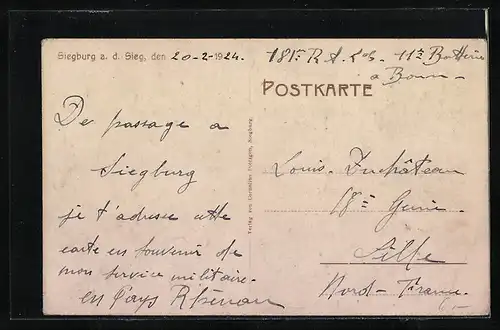 Siegburg a. d. Sieg, den 20-2-1924.
181e R A. 11e Batterie
a Bonn
POSTKARTE
De passage a
Siegburg
je t'adresse cette
carte en souvenir de
mon service militaire.
en Pays Rhénan
Louis Duchâteau
18e Genie
Lille
Nord - France